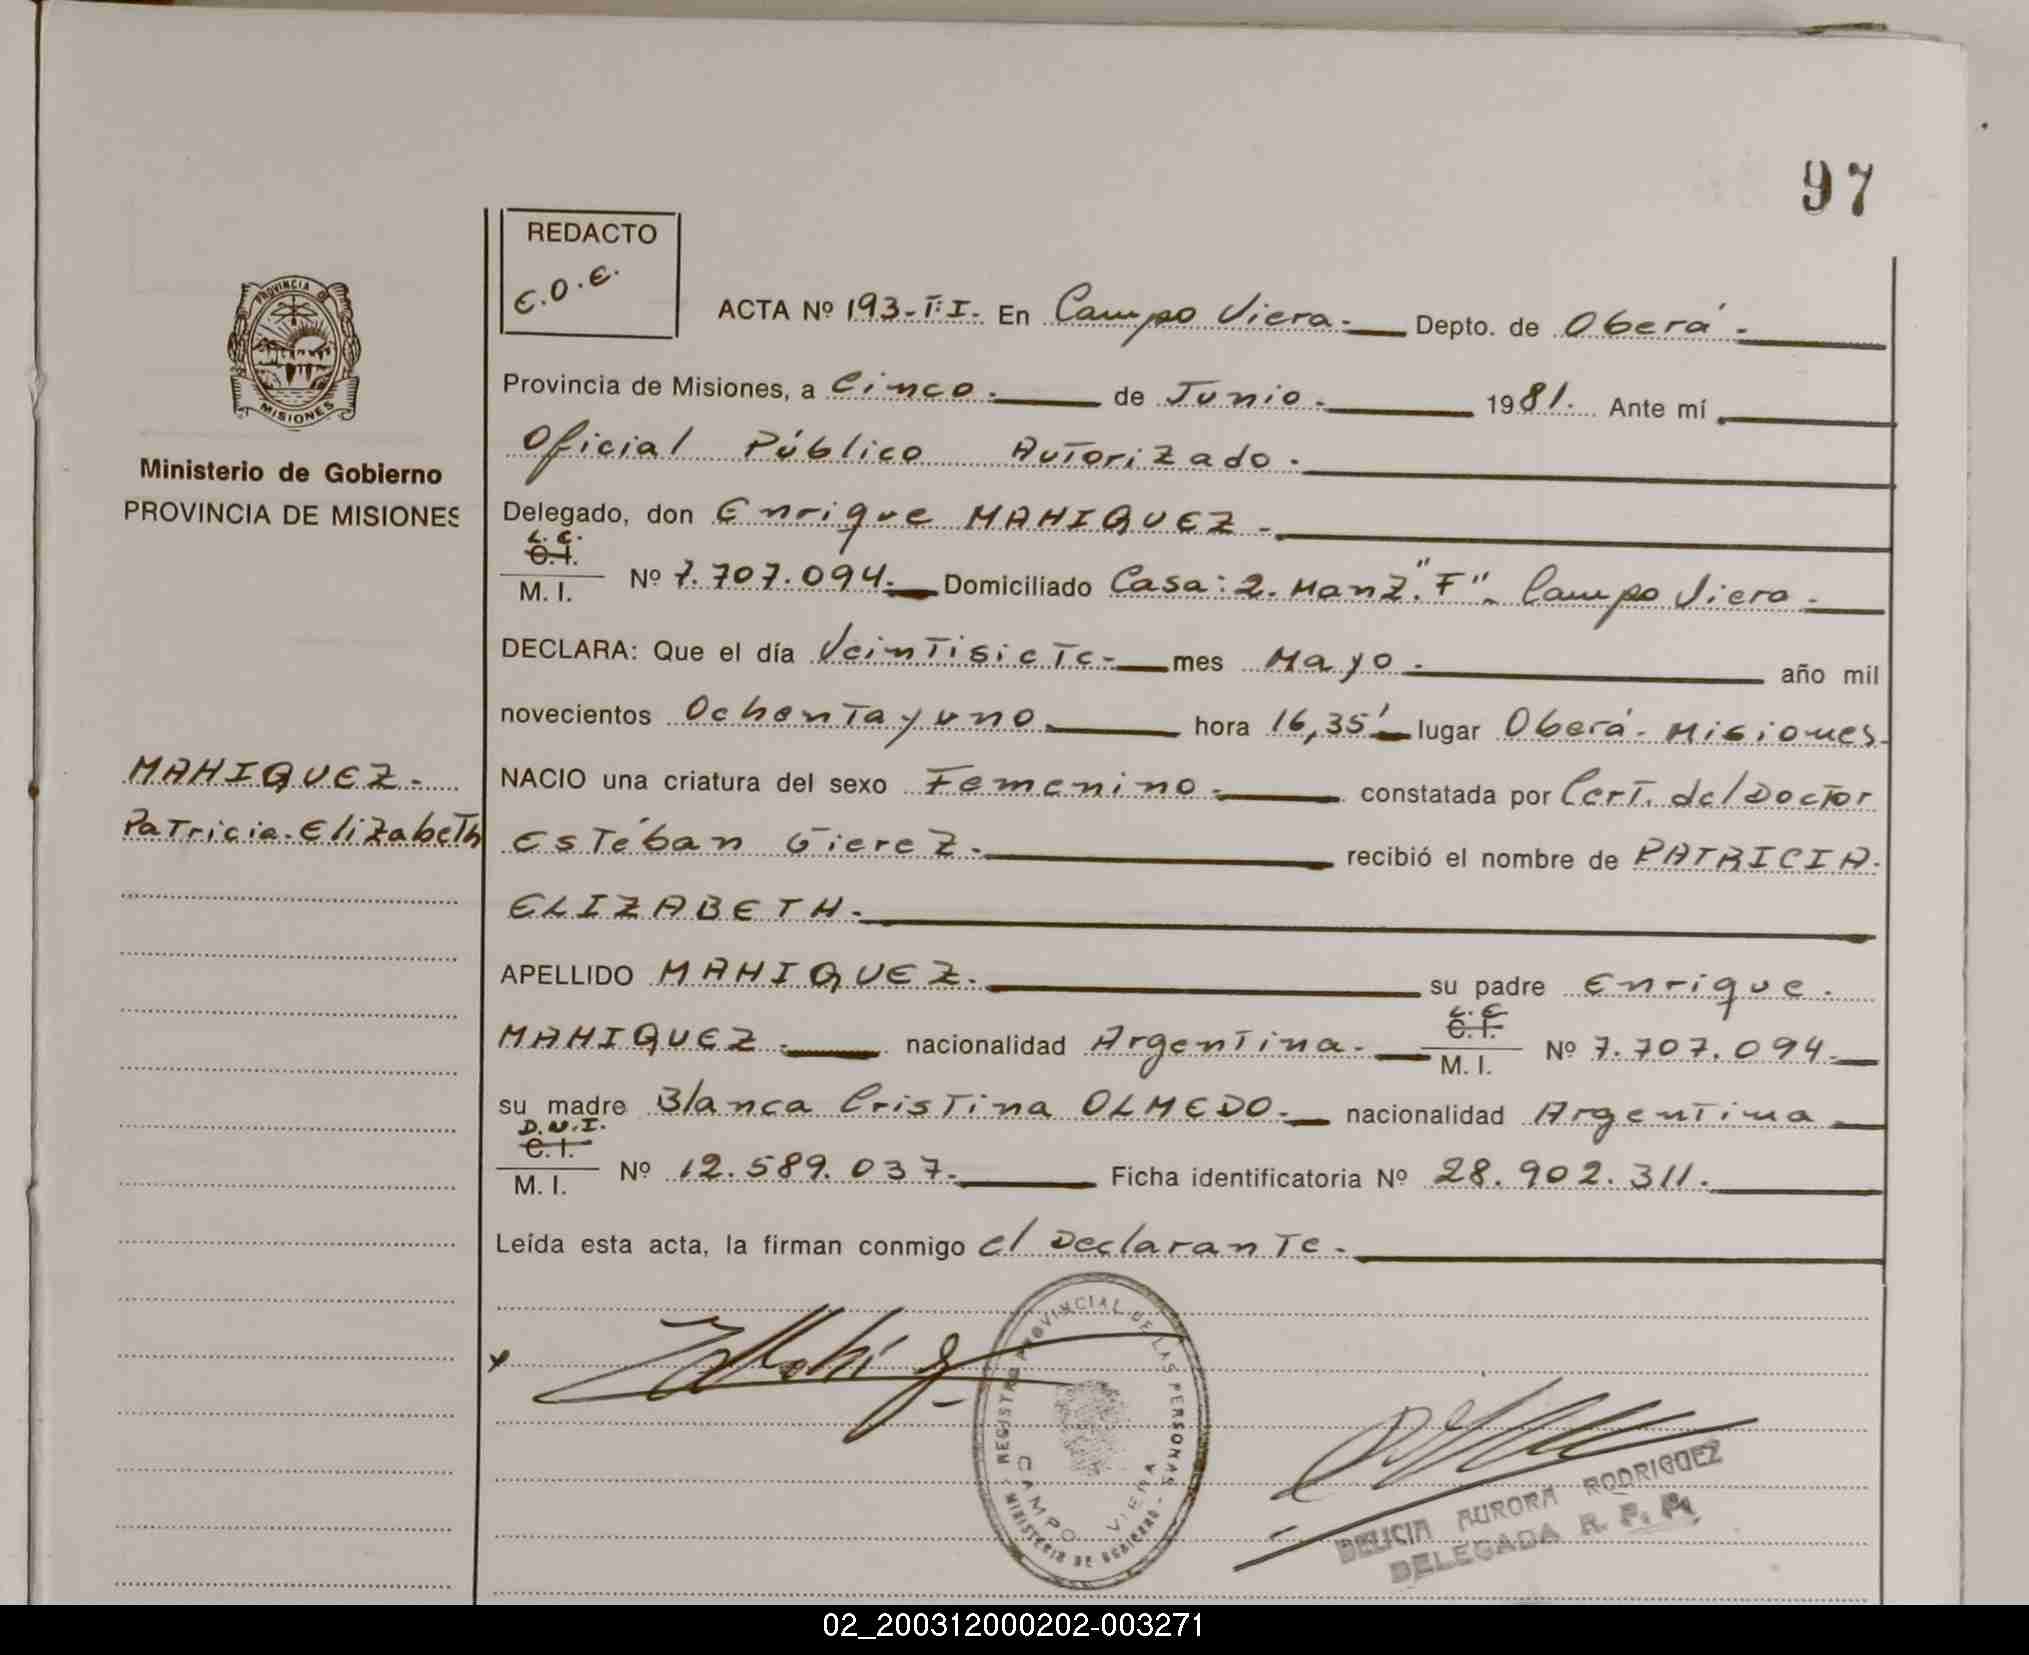 97
REDACTO
C.O.E.
ACTA Nº 193-T:I- En Campo Viera.- Depto. de Oberá.-
Provincia de Misiones, a Cinco.- de Junio.- 1981. Ante mí
Oficial Público Autorizado.-
Delegado, don Enrique MAHIQUEZ.-
L.E.
C.I.
M. I. Nº 7.707.094.- Domiciliado Casa: 2. Manz. "F". Campo Viera.-
DECLARA: Que el día Veintisiete- mes Mayo.- año mil
novecientos Ochenta y uno.- hora 16,35'- lugar Oberá- Misiones.
NACIO una criatura del sexo Femenino.- constatada por Cert. del Doctor
Estéban Gierez.- recibió el nombre de PATRICIA.
ELIZABETH.-
APELLIDO MAHIQUEZ.- su padre Enrique.
L.E.
MAHIQUEZ.- nacionalidad Argentina.- C.I.
M. I. Nº 7.707.094.-
su madre Blanca Cristina OLMEDO.- nacionalidad Argentina
D.N.I.
C.I.
M. I. Nº 12.589.037.- Ficha identificatoria Nº 28.902.311.-
Leída esta acta, la firman conmigo el Declarante.-
PROVINCIA DE
MISIONES
Ministerio de Gobierno
PROVINCIA DE MISIONES
MAHIQUEZ.-
Patricia. Elizabeth
x
REGISTRO PROVINCIAL DE LAS PERSONAS
CAMPO VIERA
MINISTERIO DE GOBIERNO
DELICIA AURORA RODRIGUEZ
DELEGADA R. P. P.
02_200312000202-003271